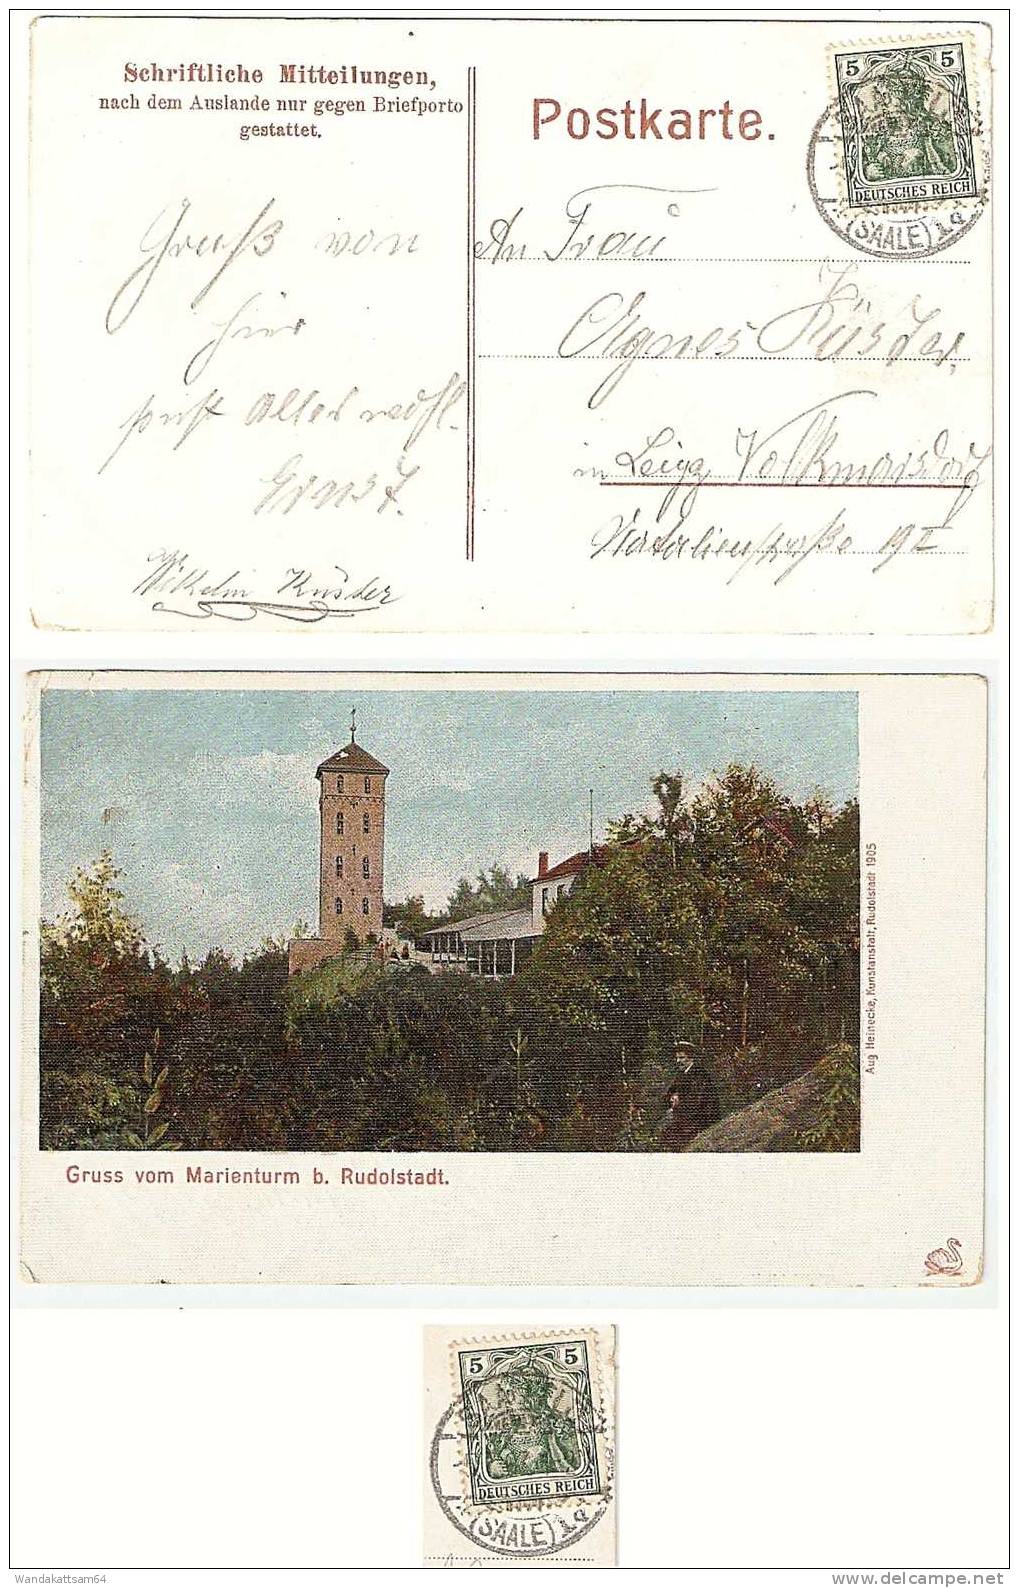 Schriftliche Mitteilungen,
nach dem Auslande nur gegen Briefporto
gestattet.
Postkarte.
5 5
DEUTSCHES REICH
(SAALE)
Gruß von
hier
sonst Alles wohl.
Ernst.
Wilhelm Küster
An Frau
Agnes Küster,
in Leipz. Volkmarsdorf
Natalienstraße 19 II
Aug Heinecke, Kunstanstalt, Rudolstadt 1905
Gruss vom Marienturm b. Rudolstadt.
5 5
DEUTSCHES REICH
(SAALE)
Wandakattsam64
www.delcampe.net